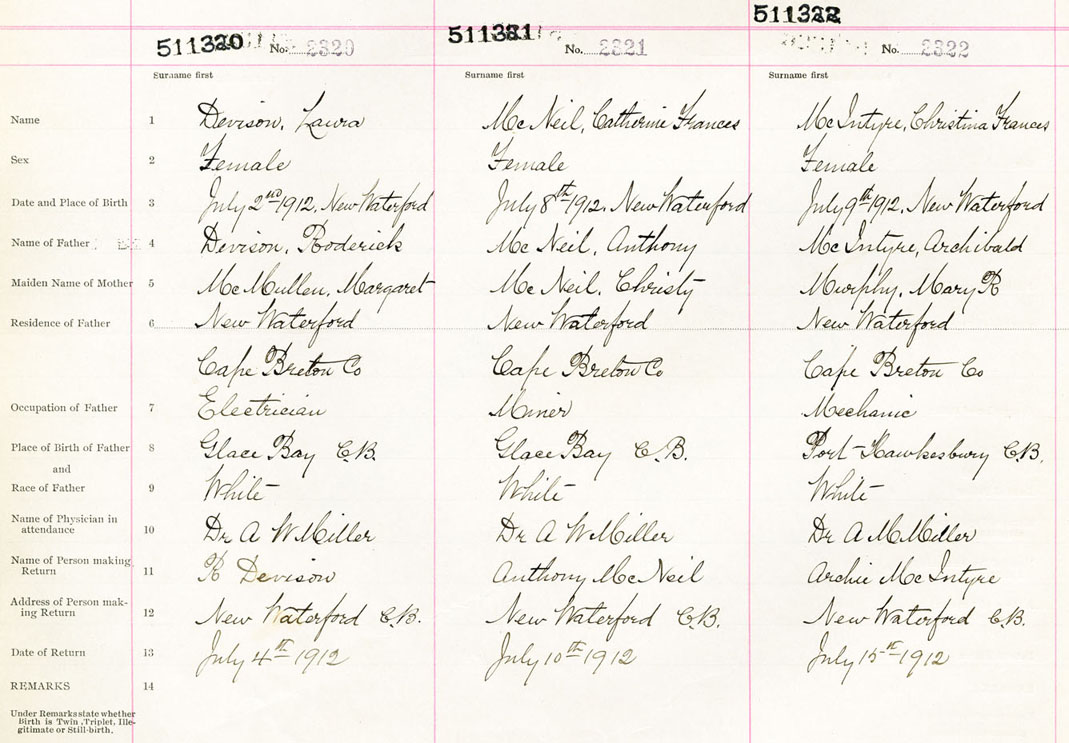 511320 No. 2320
511321 No. 2321
511322 No. 2322
Surname first Surname first Surname first
Name 1 Devison, Laura McNeil, Catherine Frances McIntyre, Christina Frances
Sex 2 Female Female Female
Date and Place of Birth 3 July 2nd 1912. New Waterford July 8th 1912. New Waterford July 9th 1912. New Waterford
Name of Father 4 Devison, Roderick McNeil, Anthony McIntyre, Archibald
Maiden Name of Mother 5 McMullen, Margaret McNeil, Christy Murphy, Mary R
Residence of Father 6 New Waterford New Waterford New Waterford
Cape Breton Co Cape Breton Co Cape Breton Co
Occupation of Father 7 Electrician Miner Mechanic
Place of Birth of Father 8 Glace Bay C.B. Glace Bay C.B. Port Hawkesbury C.B.
and
Race of Father 9 White White White
Name of Physician in
attendance 10 Dr A W Miller Dr A W Miller Dr A M Miller
Name of Person making
Return 11 R Devison Anthony McNeil Archie McIntyre
Address of Person mak-
ing Return 12 New Waterford C.B. New Waterford C.B. New Waterford C.B.
Date of Return 13 July 4th 1912 July 10th 1912 July 15th 1912
REMARKS 14
Under Remarks state whether
Birth is Twin, Triplet, Ille-
gitimate or Still-birth.